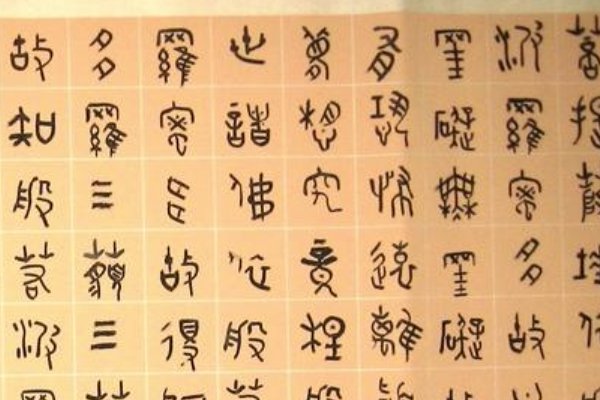 菩提薩埵依
波羅蜜多故
罣礙無罣礙
有恐怖遠離
夢想究竟涅
世諸佛依般
羅蜜多故得
多羅三藐三
故知般若波